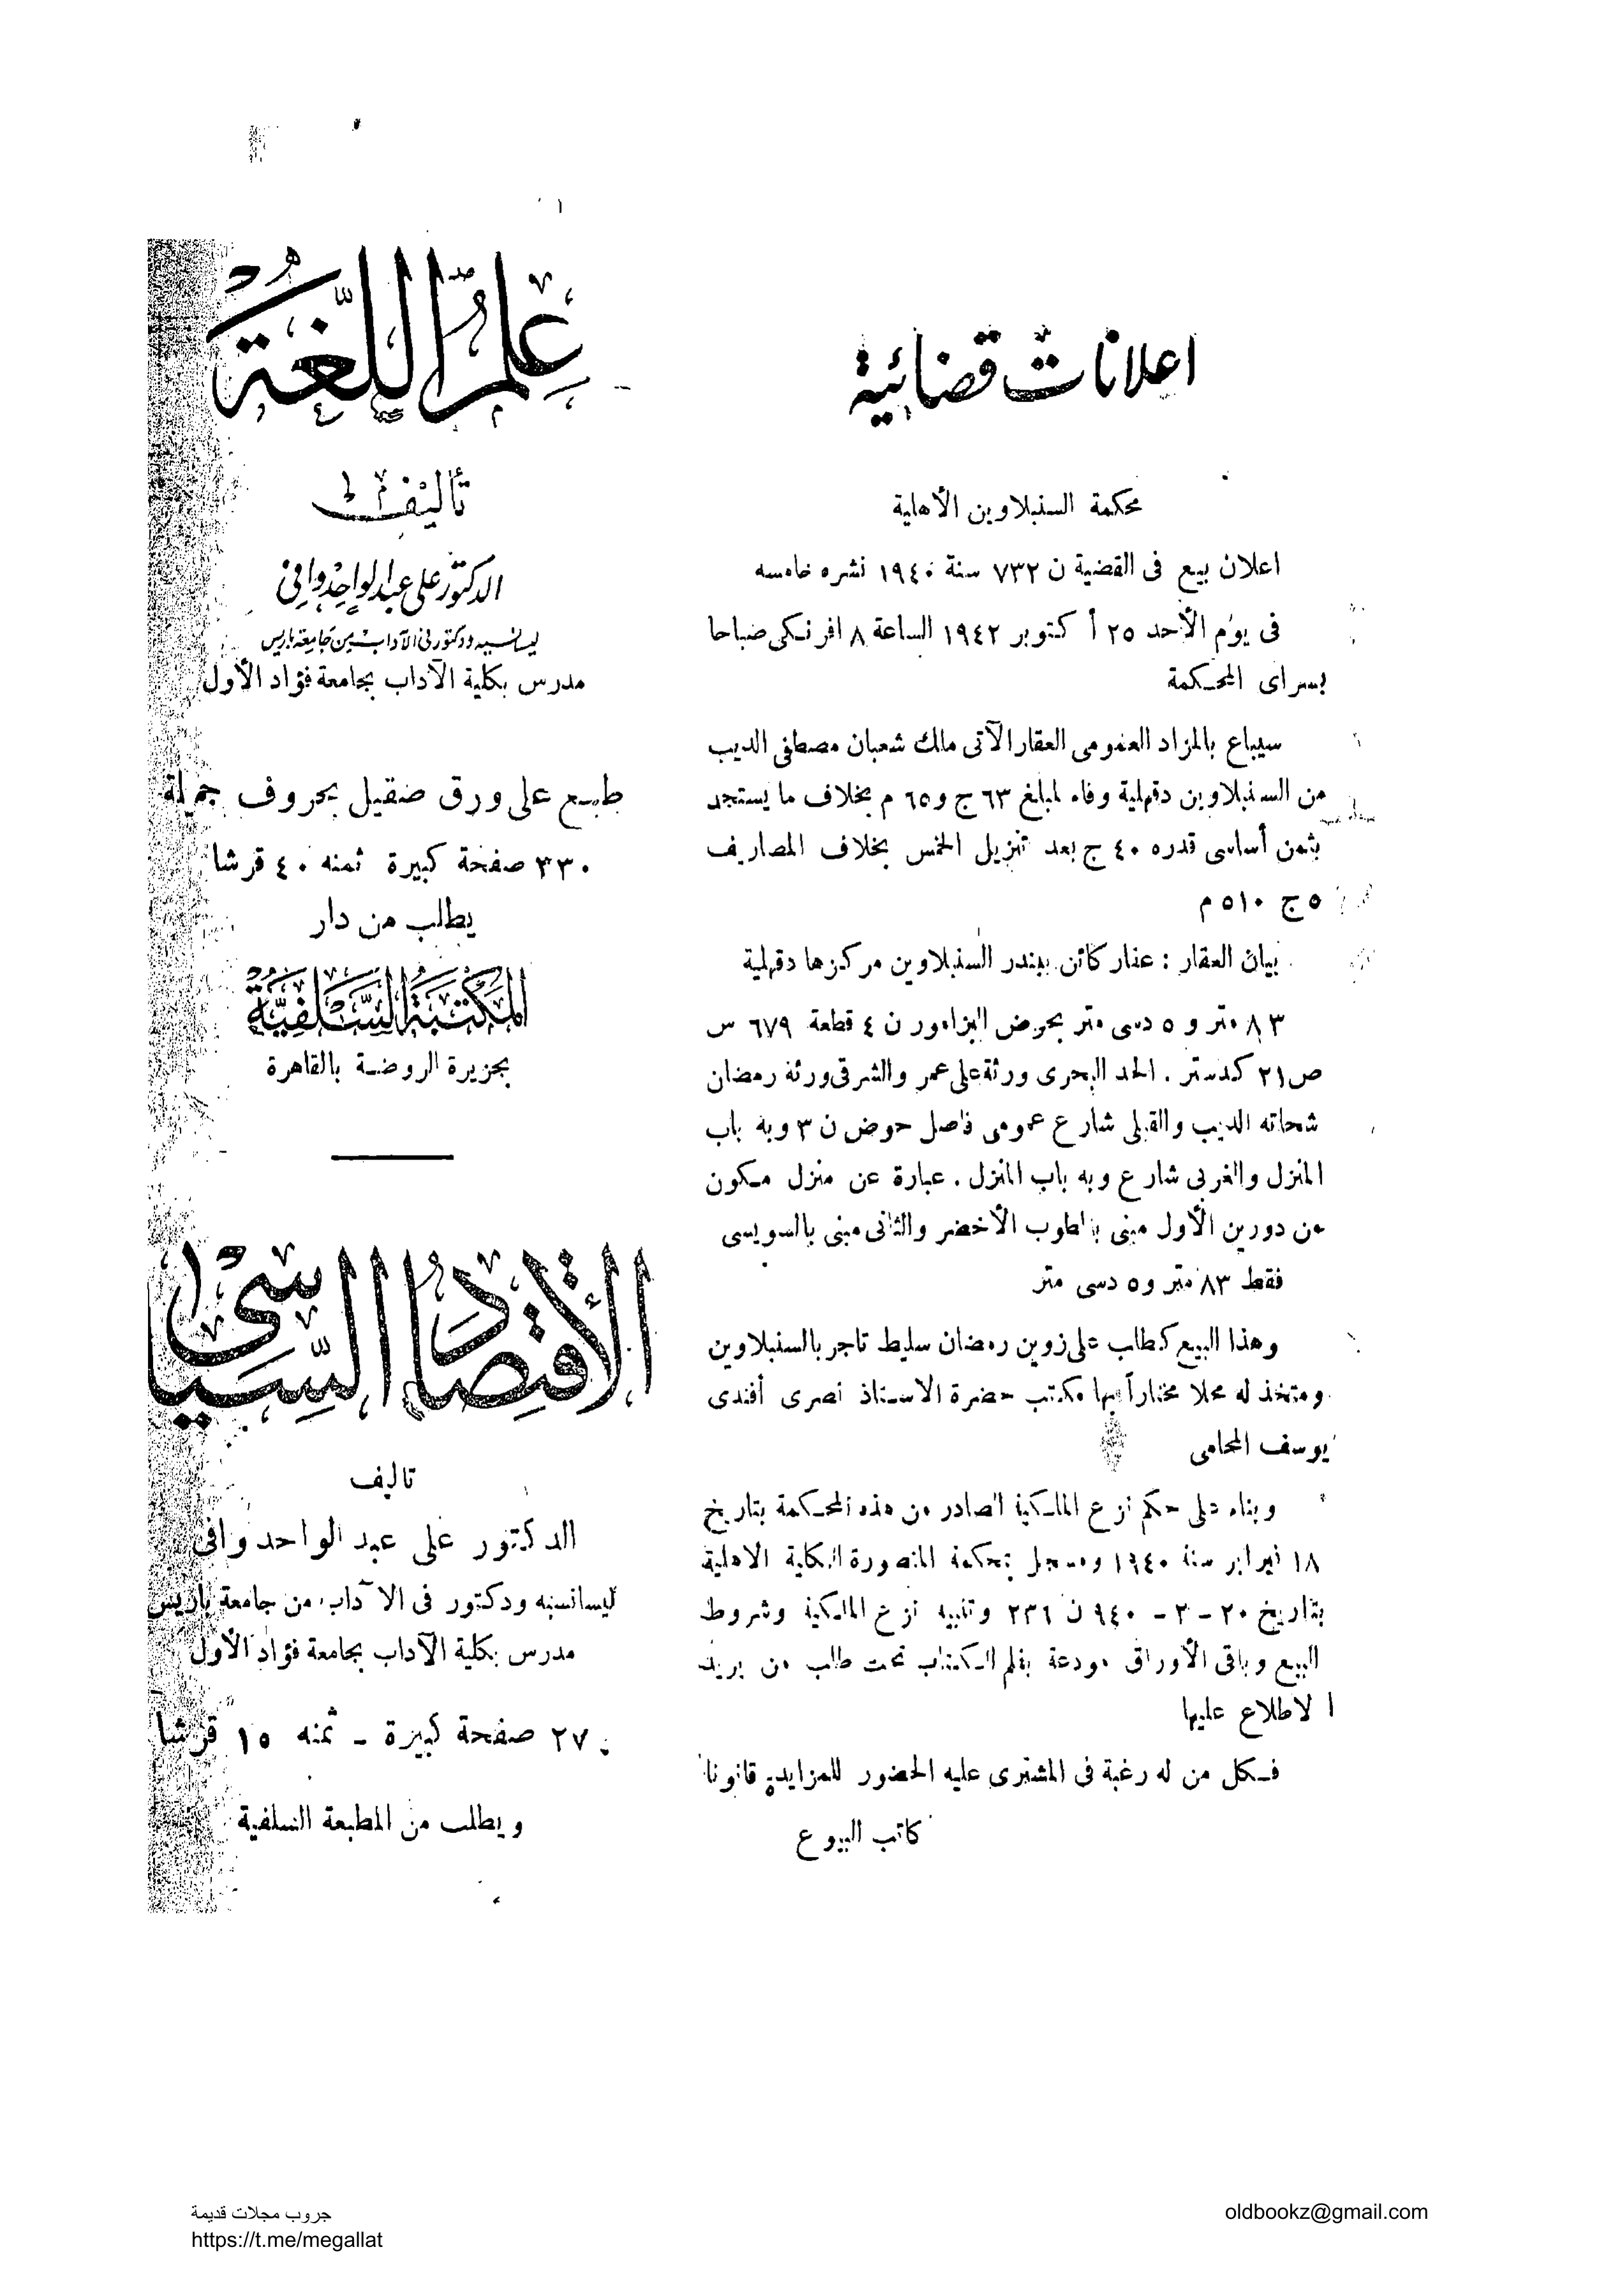 اعلانات قضائية
محكمة السنبلاوين الأهلية
اعلان بيع فى القضية ن ٧٣٢ سنة ١٩٤٠ نشره خامسه
فى يوم الأحد ٢٥ أكتوبر ١٩٤٢ الساعة ٨ افرنكى صباحا
بسراى المحكمة
سيباع بالمزاد العمومى العقار الآتى ملك شعبان مصطفى الديب
من السنبلاوين دقهلية وفاء لمبلغ ٦٣ ج و ٦٥ م بخلاف ما يستجد
بثمن أساسى قدره ٤٠ ج بعد تنزيل الخمس بخلاف المصاريف
٥ ج ٥١٠ م
بيان العقار : عقار كائن ببندر السنبلاوين مركزها دقهلية
٨٣ متر و ٥ دسى متر بحوض ن ٤ قطعة ٦٧٩ س
ص ٢١ كدستر . الحد البحرى ورثة على عمر والشرقى ورثة رمضان
شحاته الديب والقبلى شارع عمومى فاصل حوض ن ٣ وبه باب
المنزل والغربى شارع وبه باب المنزل . عبارة عن منزل مكون
من دورين الأول مبنى بالطوب الأخضر والثانى مبنى بالسويسى
فقط ٨٣ متر و ٥ دسى متر
وهذا البيع كطلب على زوين رمضان سليط تاجر بالسنبلاوين
ومتخذ له محلا مختاراً بها مكتب حضرة الاستاذ نصرى أفندى
يوسف المحامى
وبناء على حكم نزع الملكية الصادر من هذه المحكمة بتاريخ
١٨ فبراير سنة ١٩٤٠ ومسجل بمحكمة المنصورة الكلية الاهلية
بتاريخ ٢٠ - ٣ - ٩٤٠ ن ٢٣٦ وتنبيه نزع الملكية وشروط
البيع وباقى الأوراق مودعة بقلم الكتاب تحت طلب من يريد
الاطلاع عليها
فكل من له رغبة فى المشترى عليه الحضور للمزايدة قانونا
كاتب البيوع
عِلمُ اللّغَة
تأليف
الدكتور على عبد الواحد وافى
ليسانسيه ودكتور فى الآداب من جامعة باريس
مدرس بكلية الآداب بجامعة فؤاد الأول
طبع على ورق صقيل بحروف جميلة
٣٣٠ صفحة كبيرة ثمنه ٤٠ قرشا
يطلب من دار
المكتبة السلفية
بجزيرة الروضة بالقاهرة
الاقتصاد السياسى
تاليف
الدكتور على عبد الواحد وافى
ليسانسيه ودكتور فى الآداب من جامعة باريس
مدرس بكلية الآداب بجامعة فؤاد الأول
٢٧٠ صفحة كبيرة - ثمنه ١٥ قرشا
ويطلب من المطبعة السلفية
جروب مجلات قديمة
https://t.me/megallat
oldbookz@gmail.com